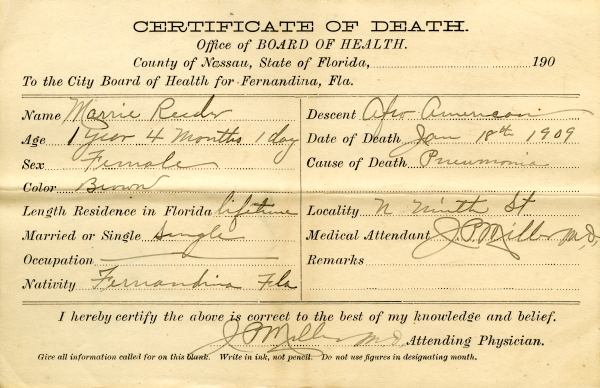 CERTIFICATE OF DEATH.
Office of BOARD OF HEALTH.
County of Nassau, State of Florida, 190
To the City Board of Health for Fernandina, Fla.
Name Marrie Reeder
Age 1 Year 4 Months 1 day
Sex Female
Color Brown
Length Residence in Florida lifetime
Married or Single Single
Occupation
Nativity Fernandina Fla
Descent Afro American
Date of Death Jan 18th 1909
Cause of Death Pneumonia
Locality N Ninth St
Medical Attendant J. P. Miller M.D.
Remarks
I hereby certify the above is correct to the best of my knowledge and belief.
J P Miller M.D. Attending Physician.
Give all information called for on this blank. Write in ink, not pencil. Do not use figures in designating month.